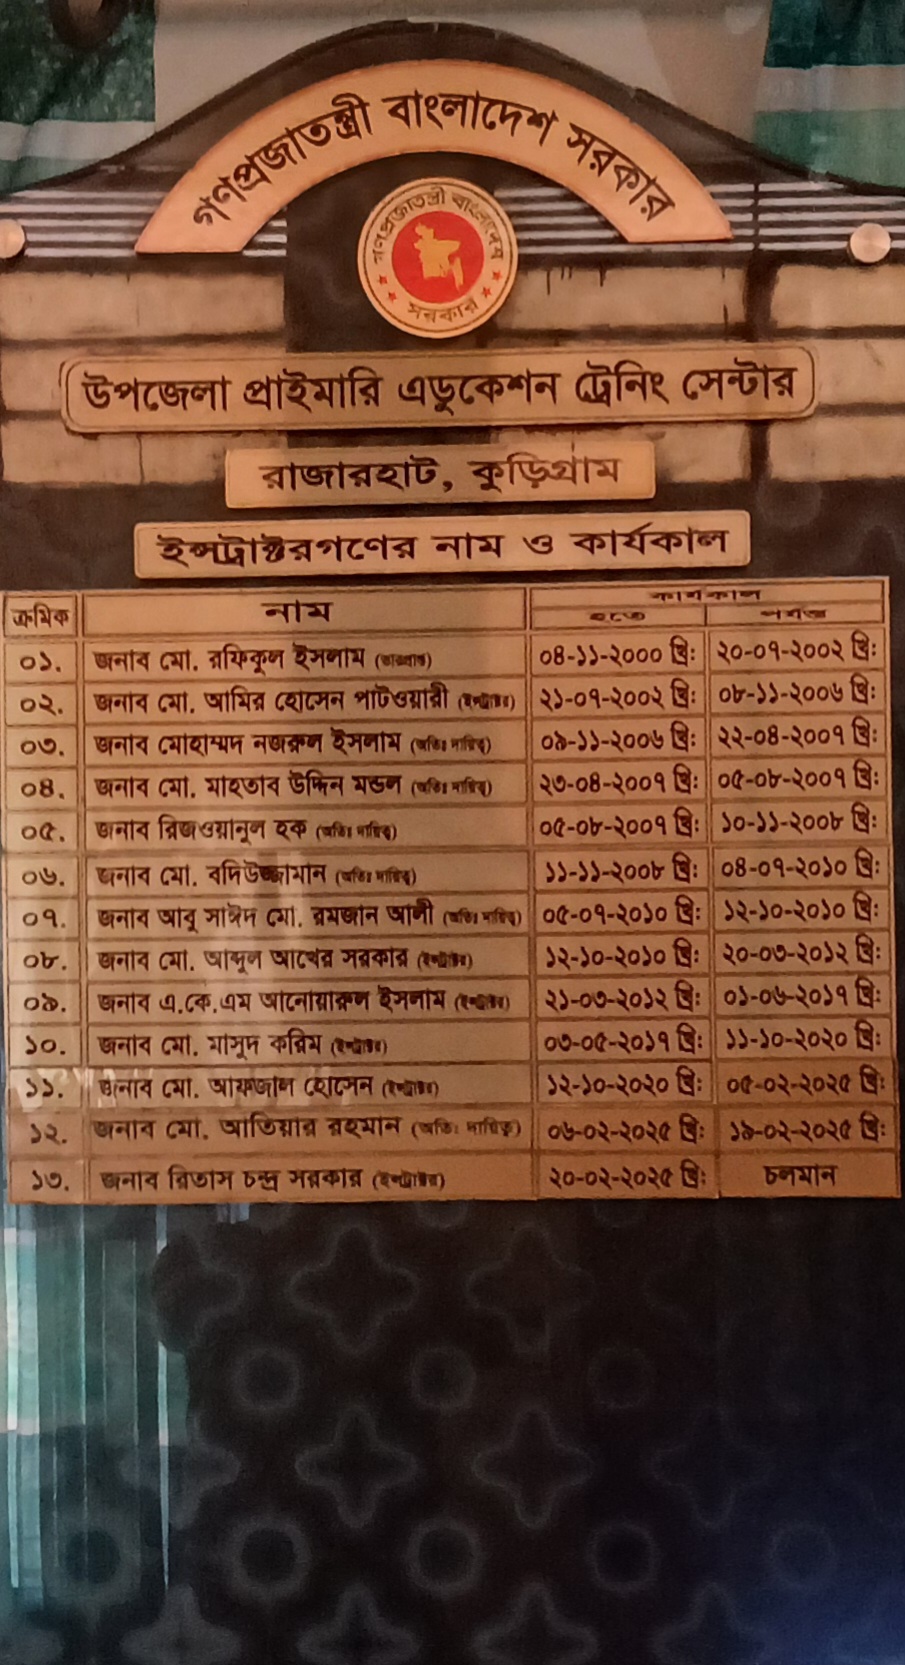 গণপ্রজাতন্ত্রী বাংলাদেশ সরকার
গণপ্রজাতন্ত্রী বাংলাদেশ
সরকার
উপজেলা প্রাইমারি এডুকেশন ট্রেনিং সেন্টার
রাজারহাট, কুড়িগ্রাম
ইন্সট্রাক্টরগণের নাম ও কার্যকাল
ক্রমিক নাম কার্যকাল
হতে পর্যন্ত
০১. জনাব মো. রফিকুল ইসলাম ০৪-১১-২০০০ খ্রি: ২০-০৭-২০০২ খ্রি:
০২. জনাব মো. আমির হোসেন পাটওয়ারী (ইন্সট্রাক্টর) ২১-০৭-২০০২ খ্রি: ০৮-১১-২০০৬ খ্রি:
০৩. জনাব মোহাম্মদ নজরুল ইসলাম (অতিঃ দায়িত্ব) ০৯-১১-২০০৬ খ্রি: ২২-০৪-২০০৭ খ্রি:
০৪. জনাব মো. মাহতাব উদ্দিন মন্ডল (অতিঃ দায়িত্ব) ২৩-০৪-২০০৭ খ্রি: ০৫-০৮-২০০৭ খ্রি:
০৫. জনাব রিজওয়ানুল হক (অতিঃ দায়িত্ব) ০৫-০৮-২০০৭ খ্রি: ১০-১১-২০০৮ খ্রি:
০৬. জনাব মো. বদিউজ্জামান (অতিঃ দায়িত্ব) ১১-১১-২০০৮ খ্রি: ০৪-০৭-২০১০ খ্রি:
০৭. জনাব আবু সাঈদ মো. রমজান আলী (অতিঃ দায়িত্ব) ০৫-০৭-২০১০ খ্রি: ১২-১০-২০১০ খ্রি:
০৮. জনাব মো. আব্দুল আখের সরকার (ইন্সট্রাক্টর) ১২-১০-২০১০ খ্রি: ২০-০৩-২০১২ খ্রি:
০৯. জনাব এ.কে.এম আনোয়ারুল ইসলাম (ইন্সট্রাক্টর) ২১-০৩-২০১২ খ্রি: ০১-০৬-২০১৭ খ্রি:
১০. জনাব মো. মাসুদ করিম (ইন্সট্রাক্টর) ০৩-০৫-২০১৭ খ্রি: ১১-১০-২০২০ খ্রি:
১১. জনাব মো. আফজাল হোসেন (ইন্সট্রাক্টর) ১২-১০-২০২০ খ্রি: ০৫-০২-২০২৫ খ্রি:
১২. জনাব মো. আতিয়ার রহমান (অতি: দায়িত্ব) ০৬-০২-২০২৫ খ্রি: ১৯-০২-২০২৫ খ্রি:
১৩. জনাব রিতাস চন্দ্র সরকার (ইন্সট্রাক্টর) ২০-০২-২০২৫ খ্রি: চলমান